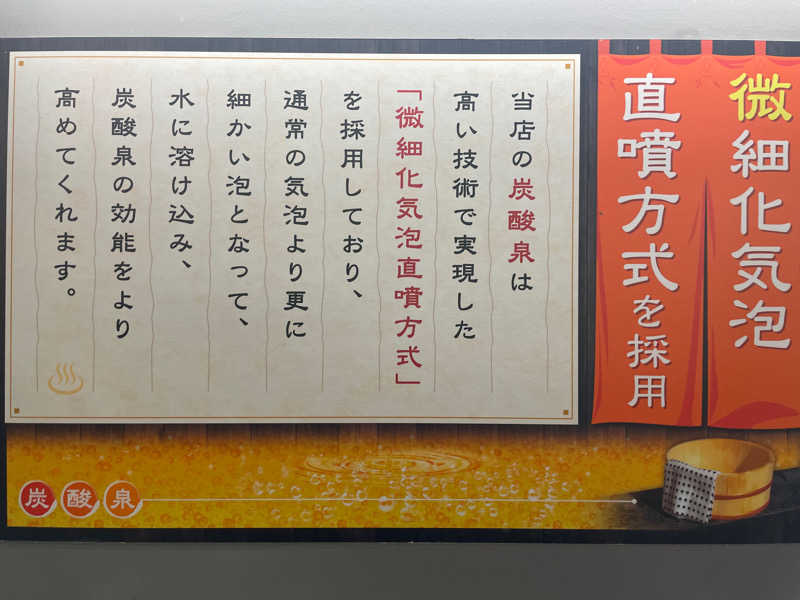 微細化気泡
直噴方式を採用
当店の炭酸泉は
高い技術で実現した
「微細化気泡直噴方式」
を採用しており、
通常の気泡より更に
細かい泡となって、
水に溶け込み、
炭酸泉の効能をより
高めてくれます。
炭酸泉